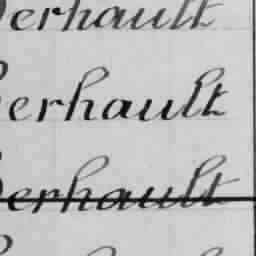 erhault
erhault
erhault